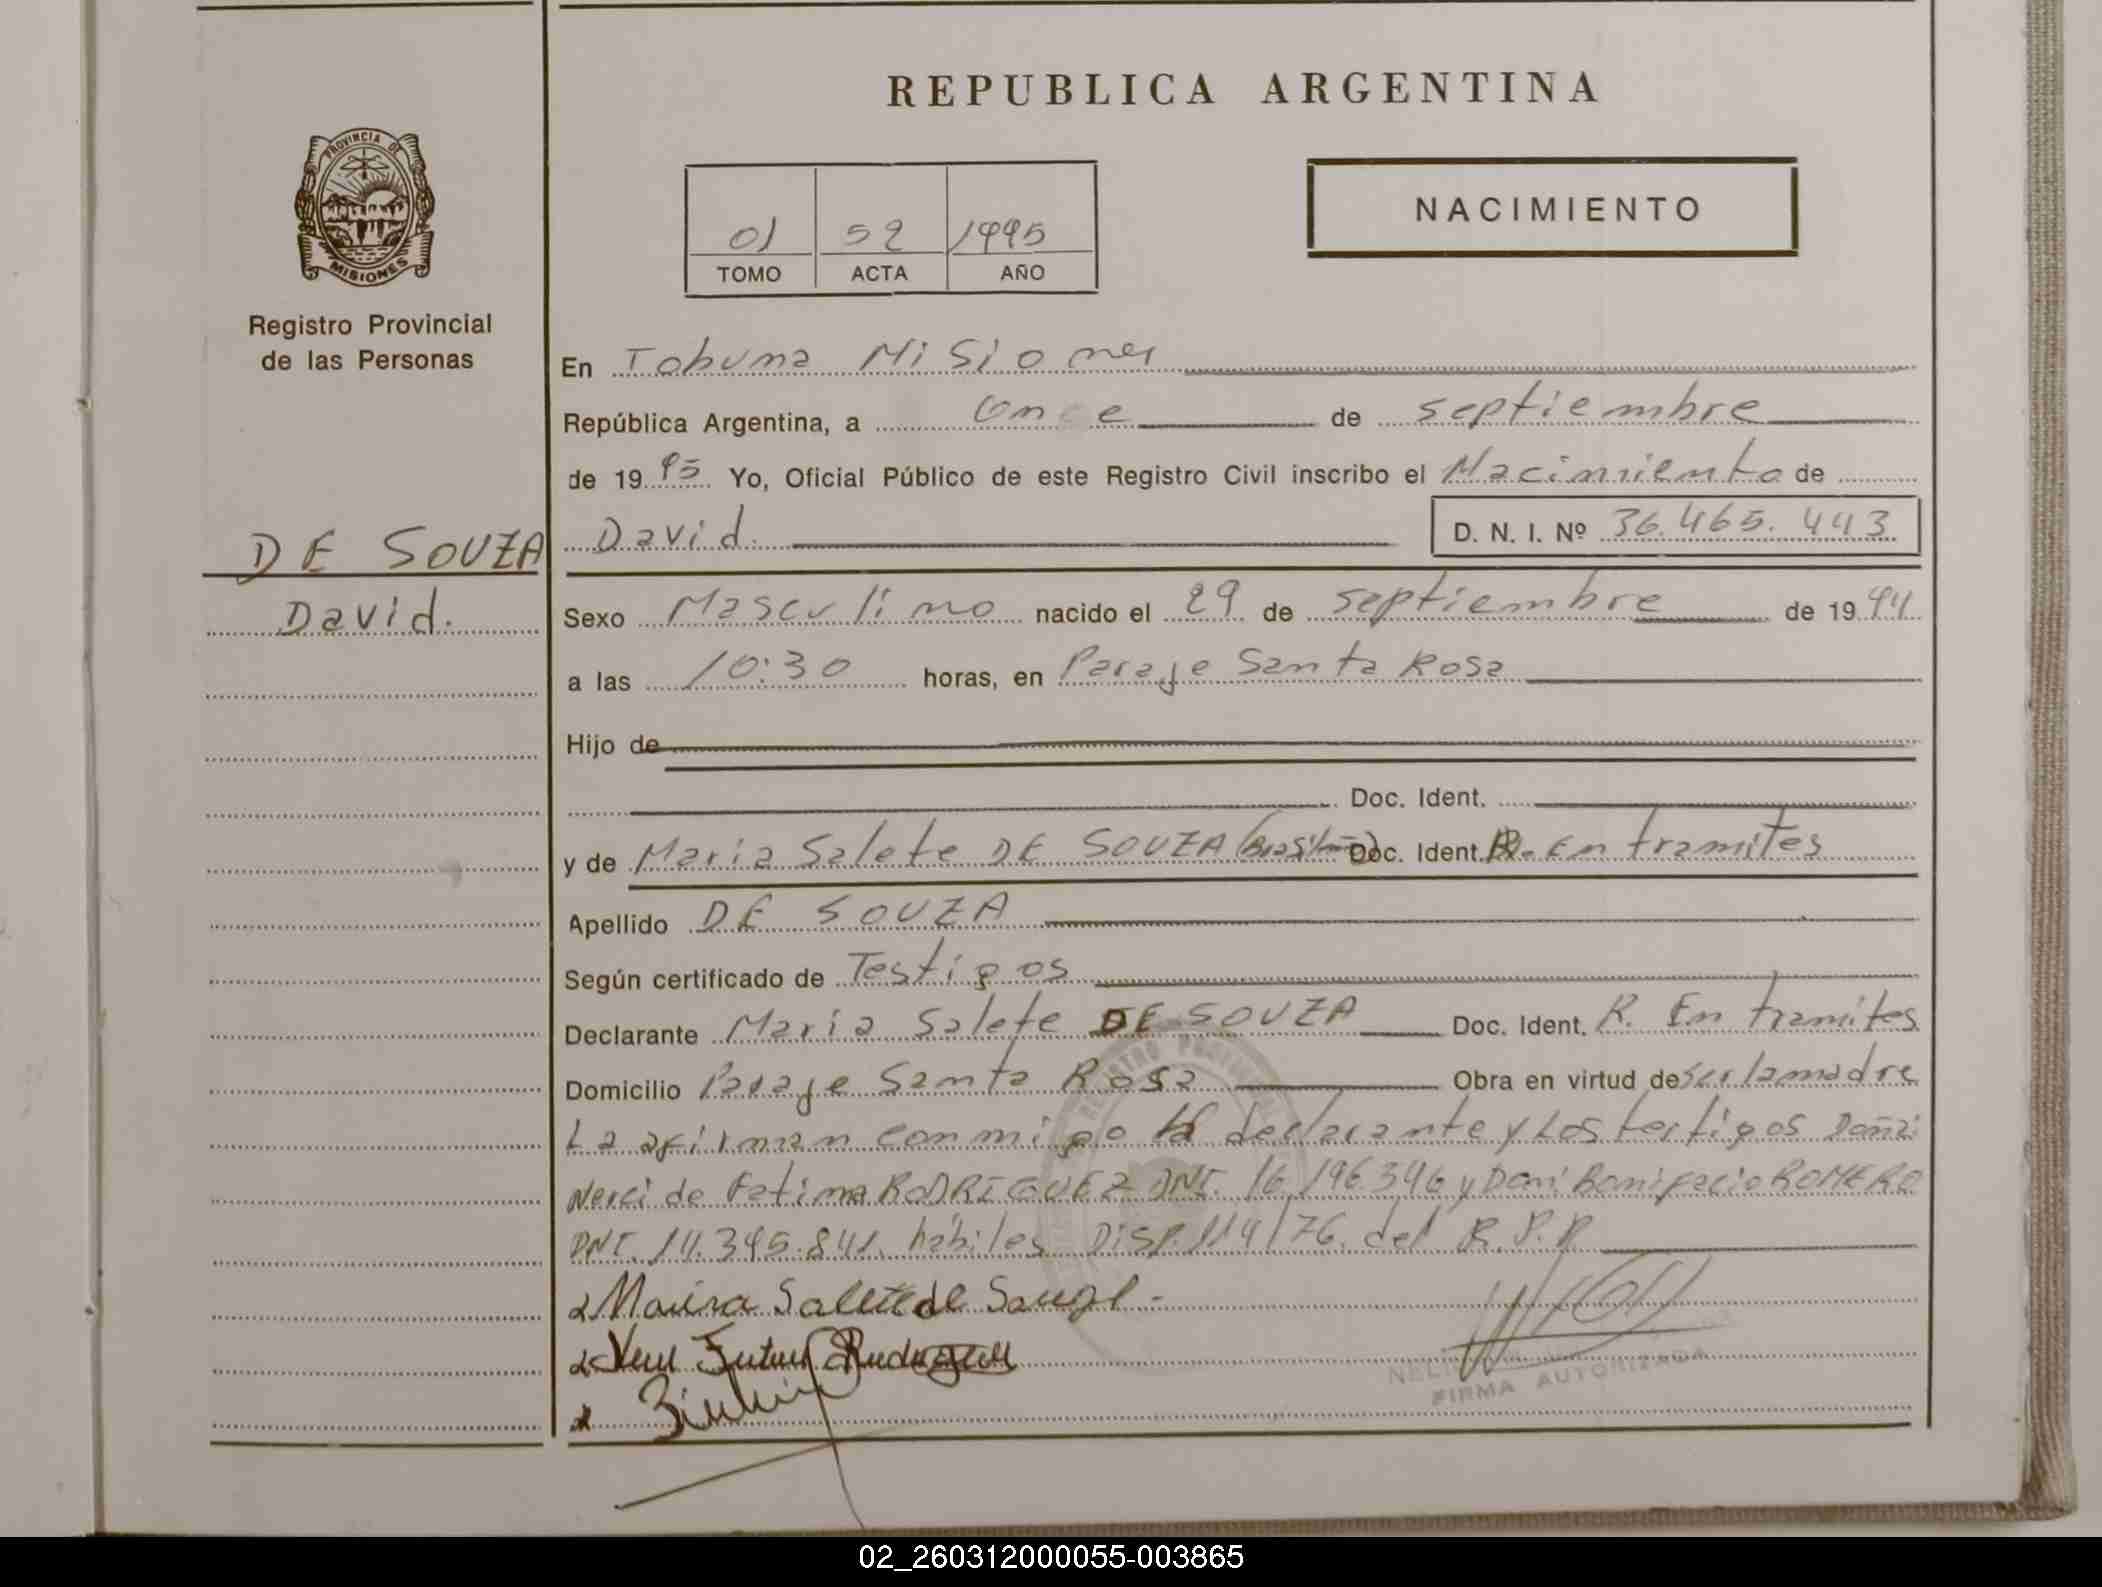 REPUBLICA ARGENTINA
PROVINCIA DE
MISIONES
Registro Provincial
de las Personas
01 52 1995
TOMO ACTA AÑO
NACIMIENTO
En Tobuna Misiones
República Argentina, a once de septiembre
de 1995 Yo, Oficial Público de este Registro Civil inscribo el Nacimiento de
DE SOUZA
David.
David. D. N. I. Nº 36.465.443
Sexo Masculino nacido el 29 de septiembre de 1994
a las 10:30 horas, en Paraje Santa Rosa
Hijo de
Doc. Ident.
y de Maria Salete DE SOUZA Doc. Ident. En tramites
Apellido DE SOUZA
Según certificado de Testigos
Declarante Maria Salete DE SOUZA Doc. Ident. R. En tramites
Domicilio Paraje Santa Rosa Obra en virtud de ser la madre
La afirman conmigo la declarante y Los testigos Doña:
Nerci de Fatima RODRIGUEZ DNI. 16.196.346 y Don: Bonifacio ROMERO
DNI. 14.395.841. hábiles DISP. 114/76. del R.P.P.
Maria Salete de Souza
FIRMA AUTORIZADA
02_260312000055-003865